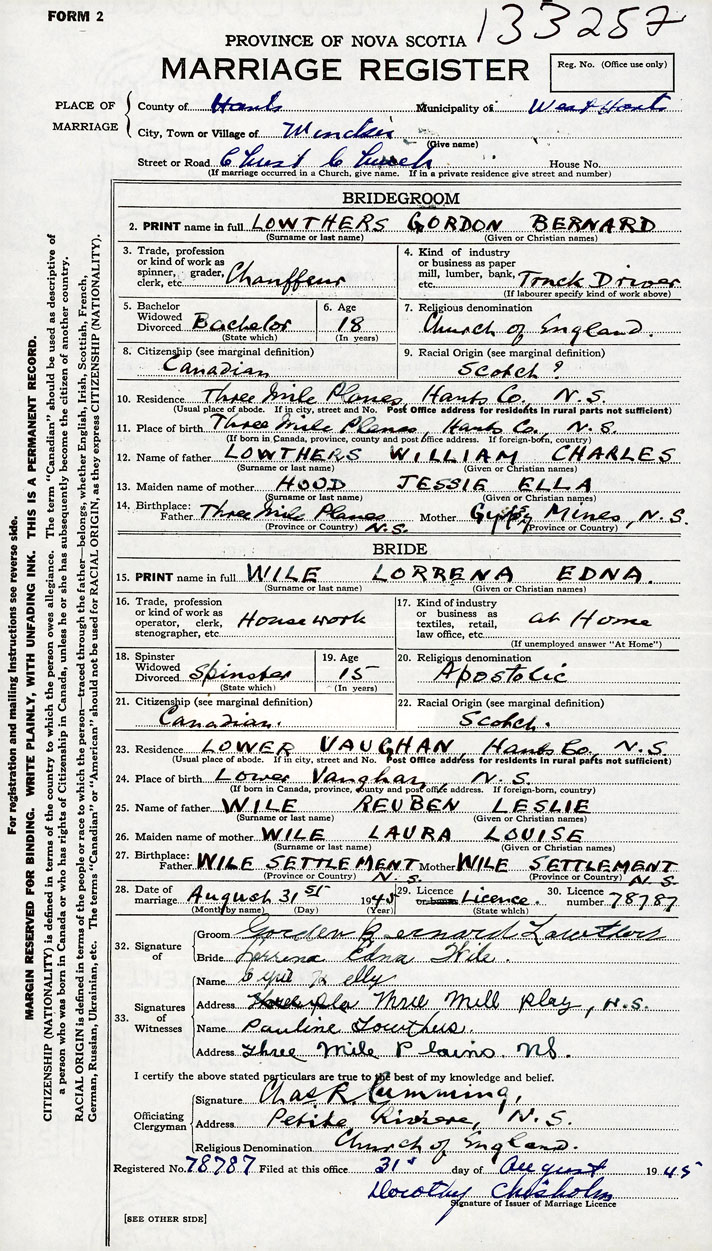 FORM 2
133257
PROVINCE OF NOVA SCOTIA
MARRIAGE REGISTER
Reg. No. (Office use only)
PLACE OF MARRIAGE
County of Hants Municipality of West Hants
City, Town or Village of Windsor
(Give name)
Street or Road Christ Church House No.
(If marriage occurred in a Church, give name. If in a private residence give street and number)
BRIDEGROOM
2. PRINT name in full LOWTHERS GORDON BERNARD
(Surname or last name) (Given or Christian names)
3. Trade, profession or kind of work as spinner, grader, clerk, etc. Chauffeur
4. Kind of industry or business as paper mill, lumber, bank, etc. Truck Driver
(If labourer specify kind of work above)
5. Bachelor Widowed Divorced Bachelor
(State which)
6. Age 18
(In years)
7. Religious denomination
Church of England.
8. Citizenship (see marginal definition)
Canadian
9. Racial Origin (see marginal definition)
Scotch?
10. Residence Three Mile Planes, Hants Co., N.S.
(Usual place of abode. If in city, street and No. Post Office address for residents in rural parts not sufficient)
11. Place of birth Three Mile Planes, Hants Co., N.S.
(If born in Canada, province, county and post office address. If foreign-born, country)
12. Name of father LOWTHERS WILLIAM CHARLES
(Surname or last name) (Given or Christian names)
13. Maiden name of mother HOOD JESSIE ELLA
(Surname or last name) (Given or Christian names)
14. Birthplace: Father Three Mile Planes N.S. Mother Mines, N.S.
(Province or Country) (Province or Country)
BRIDE
15. PRINT name in full WILE LORRENA EDNA.
(Surname or last name) (Given or Christian names)
16. Trade, profession or kind of work as operator, clerk, stenographer, etc. Housework
17. Kind of industry or business as textiles, retail, law office, etc. at Home
(If unemployed answer "At Home")
18. Spinster Widowed Divorced Spinster
(State which)
19. Age 15
(In years)
20. Religious denomination
Apostolic
21. Citizenship (see marginal definition)
Canadian.
22. Racial Origin (see marginal definition)
Scotch.
23. Residence LOWER VAUGHAN, Hants Co., N.S.
(Usual place of abode. If in city, street and No. Post Office address for residents in rural parts not sufficient)
24. Place of birth Lower Vaughan, N.S.
(If born in Canada, province, county and post office address. If foreign-born, country)
25. Name of father WILE REUBEN LESLIE
(Surname or last name) (Given or Christian names)
26. Maiden name of mother WILE LAURA LOUISE
(Surname or last name) (Given or Christian names)
27. Birthplace: Father WILE SETTLEMENT N.S. Mother WILE SETTLEMENT N.S.
(Province or Country) (Province or Country)
28. Date of marriage August 31st 1945
(Month by name) (Day) (Year)
29. Licence or banns Licence.
(State which)
30. Licence number 78787
32. Signature of
Groom Gorden Bernard Lowthers
Bride Lorrena Edna Wile.
33. Signatures of Witnesses
Name
Address Three Mill Play, N.S.
Name Pauline Lowthers.
Address Three Mile Plains. NS.
I certify the above stated particulars are true to the best of my knowledge and belief.
Officiating Clergyman
Signature Chas R. Cumming,
Address Petite Riviere, N.S.
Religious Denomination Church of England.
Registered No. 78787 Filed at this office 31st day of August 1945
Dorothy Chisholm
Signature of Issuer of Marriage Licence
[SEE OTHER SIDE]
For registration and mailing instructions see reverse side.
MARGIN RESERVED FOR BINDING. WRITE PLAINLY, WITH UNFADING INK. THIS IS A PERMANENT RECORD.
CITIZENSHIP (NATIONALITY) is defined in terms of the country to which the person owes allegiance. The term "Canadian" should be used as descriptive of
a person who was born in Canada or who has rights of Citizenship in Canada, unless he or she has subsequently become the citizen of another country.
RACIAL ORIGIN is defined in terms of the people or race to which the person—traced through the father—belongs, whether English, Irish, Scottish, French,
German, Russian, Ukrainian, etc. The terms "Canadian" or "American" should not be used for RACIAL ORIGIN, as they express CITIZENSHIP (NATIONALITY).